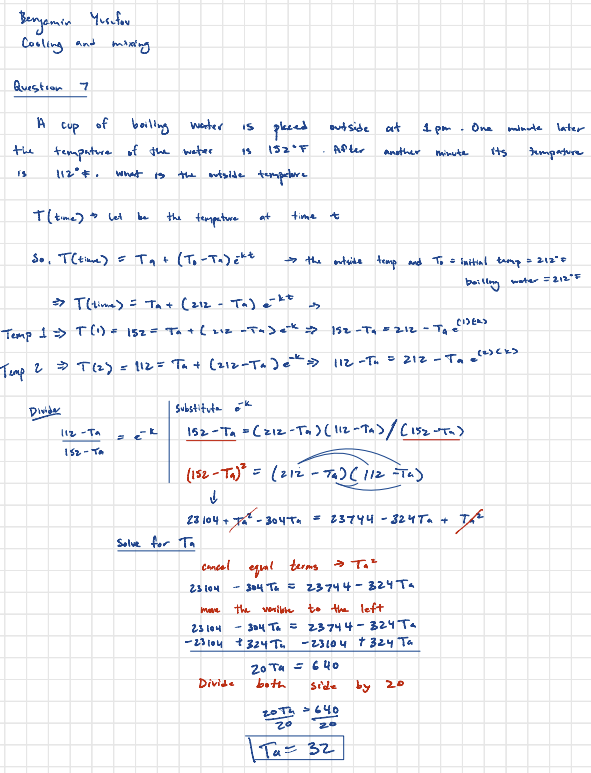 Benjamin Yusufov
Cooling and mixing
Question 7
A cup of boiling water is placed outside at 1 pm. One minute later
the tempature of the water is 152°F. After another minute its tempature
is 112°F. What is the outside tempature
T(time) → Let be the tempeture at time t
So, T(time) = Ta + (T₀ - Ta) e^-kt → the outside temp and T₀ = initial temp = 212°F
boiling water = 212°F
⇒ T(time) = Ta + (212 - Ta) e^-kt →
Temp 1 ⇒ T(1) = 152 = Ta + (212 - Ta) e^-k ⇒ 152 - Ta = 212 - Ta e^(1)(k)
Temp 2 ⇒ T(2) = 112 = Ta + (212 - Ta) e^-k ⇒ 112 - Ta = 212 - Ta e^(2)(k)
Divide
(112 - Ta)/(152 - Ta) = e^-k
Substitute e^-k
152 - Ta = (212 - Ta)(112 - Ta) / (152 - Ta)
(152 - Ta)² = (212 - Ta)(112 - Ta)
↓
23104 + Ta² - 304Ta = 23744 - 324Ta + Ta²
Solve for Ta
cancel equal terms → Ta²
23104 - 304Ta = 23744 - 324Ta
move the varible to the left
23104 - 304Ta = 23744 - 324Ta
-23104 + 324Ta -23104 + 324Ta
20Ta = 640
Divide both side by 20
20Ta/20 = 640/20
Ta = 32